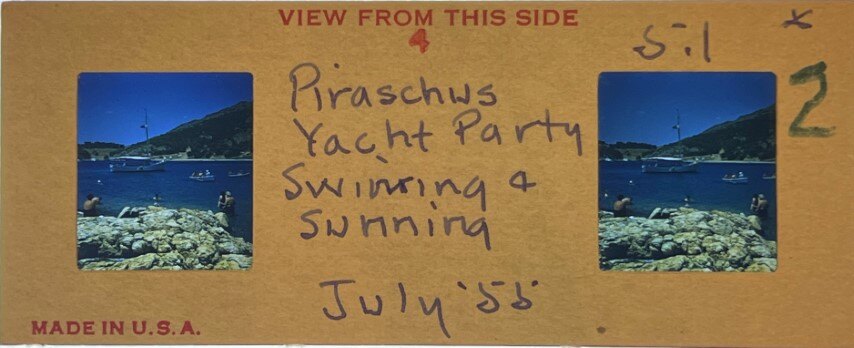 VIEW FROM THIS SIDE
4
5.1 x
2
Piraschus
Yacht Party
Swinring &
Sunning
July '55
MADE IN U.S.A.